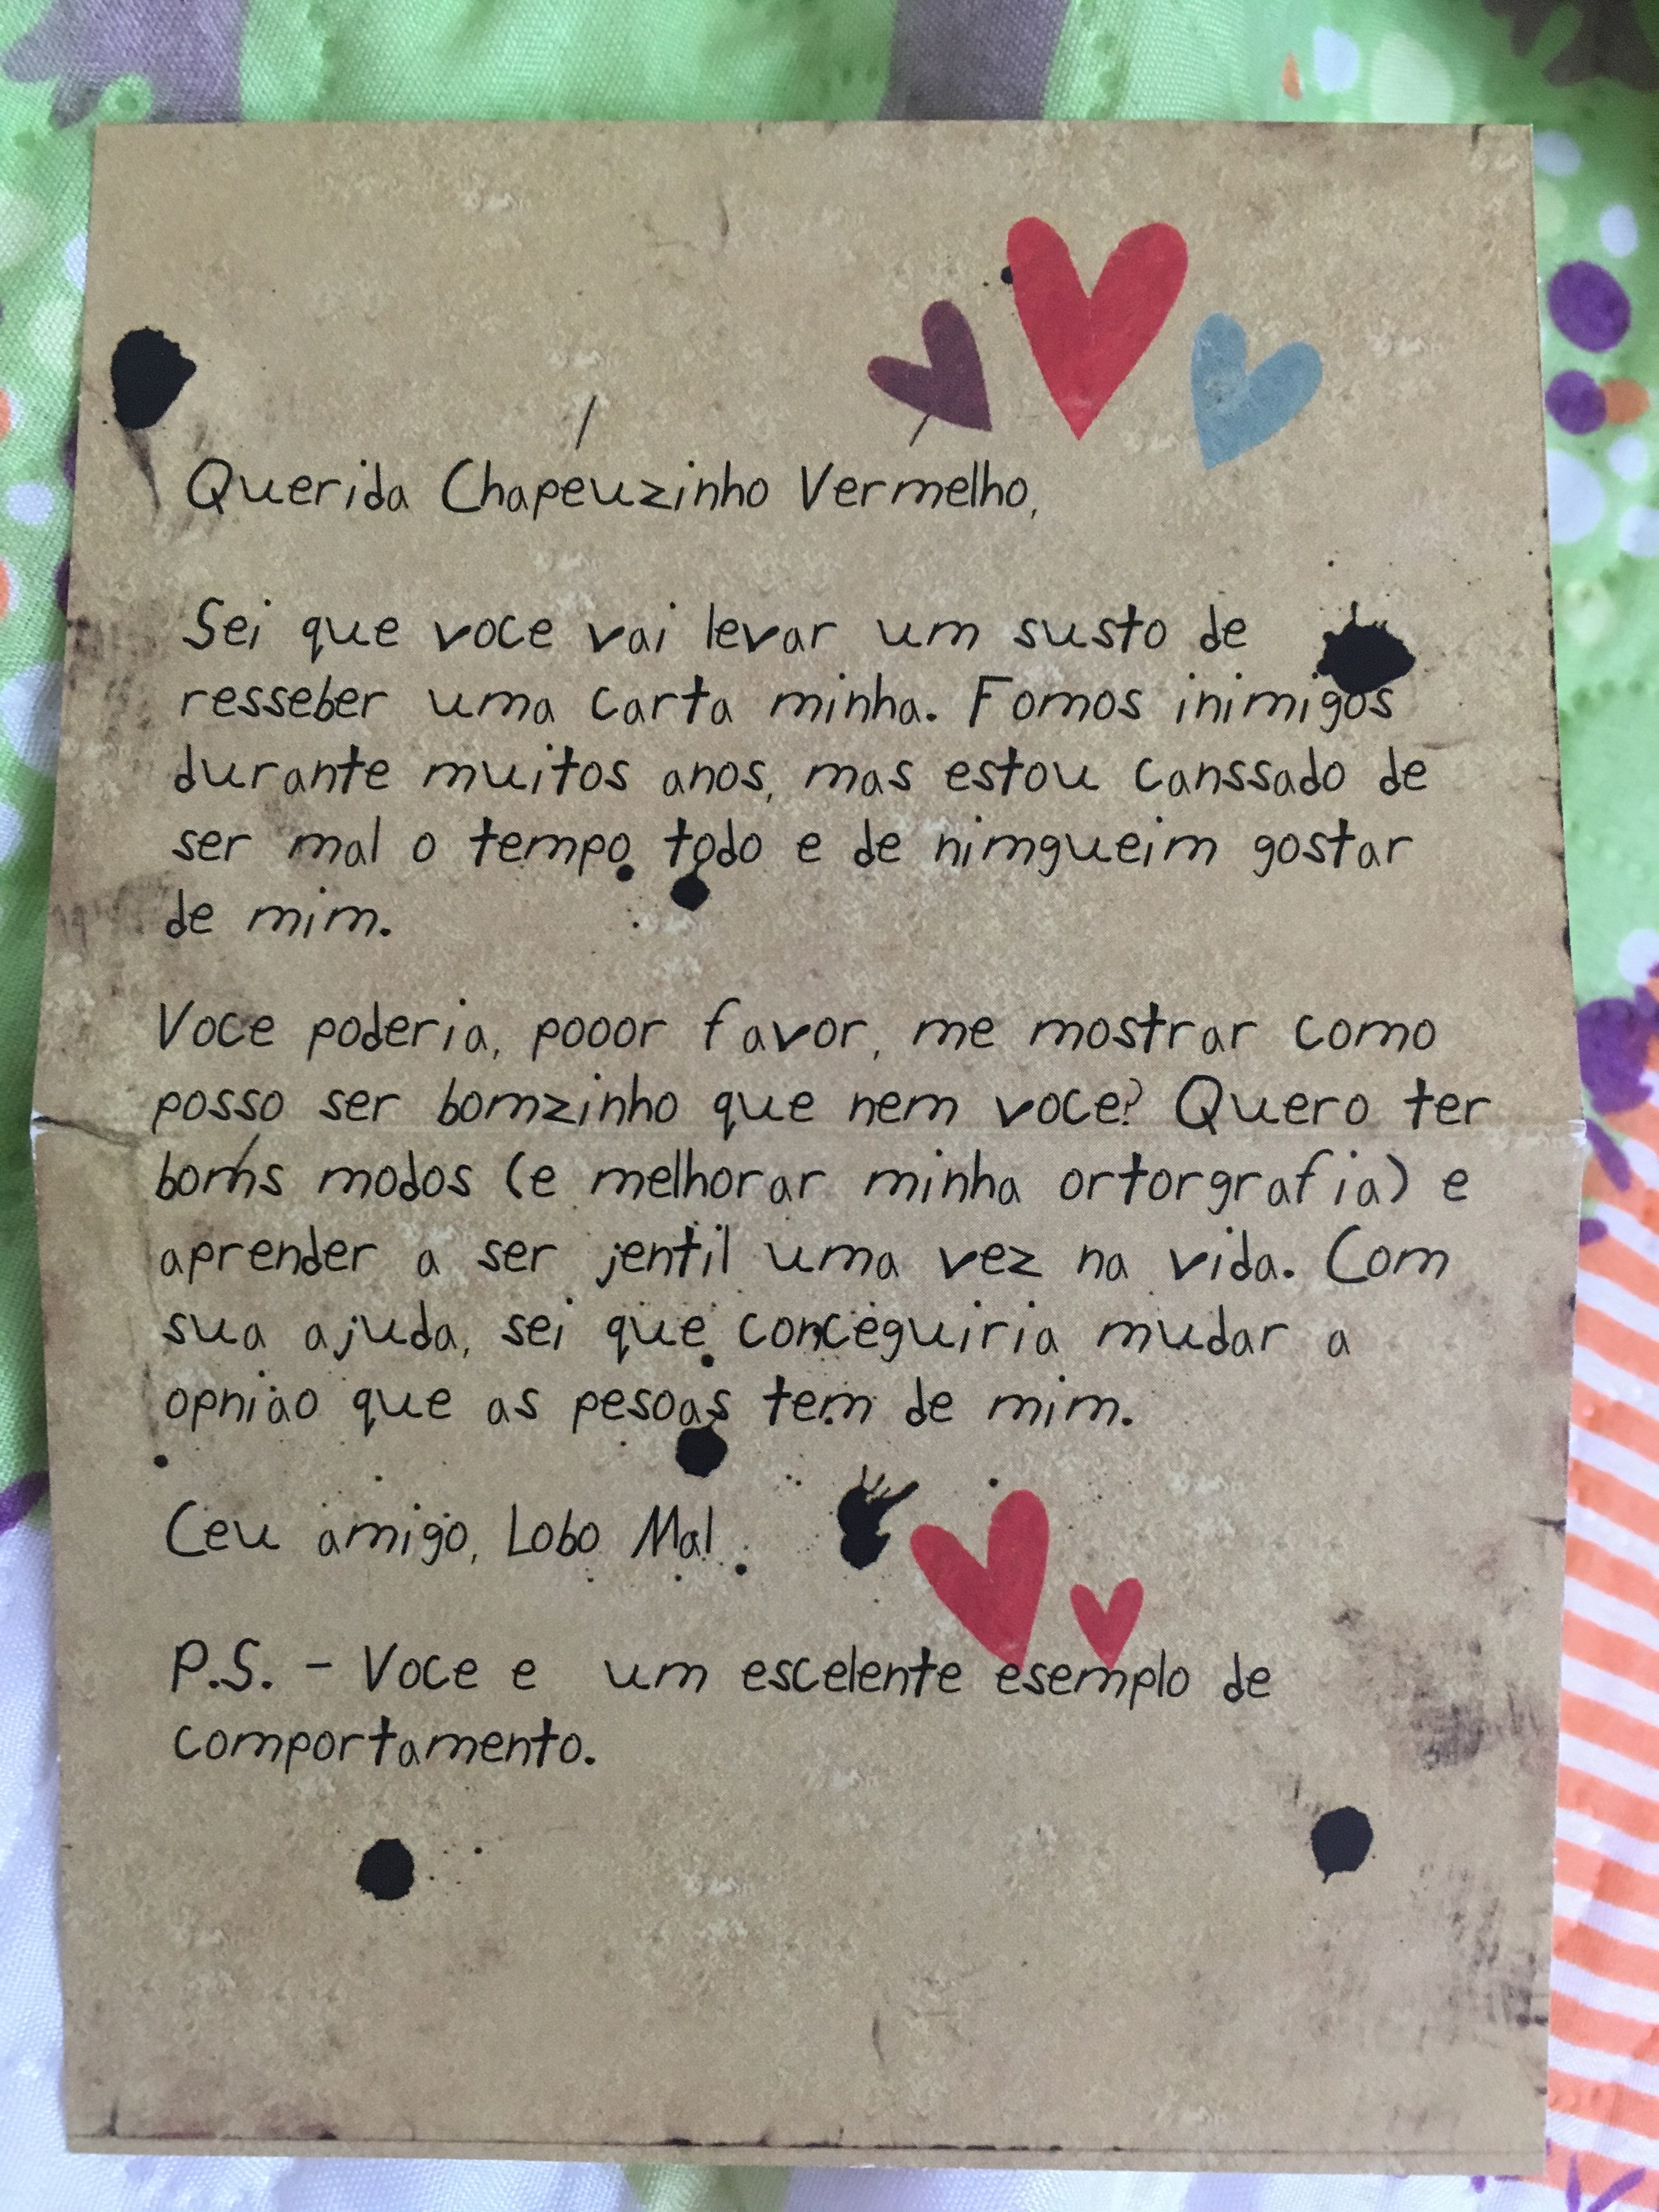 Querida Chapeuzinho Vermelho,
Sei que voce vai levar um susto de
resseber uma carta minha. Fomos inimigos
durante muitos anos, mas estou canssado de
ser mal o tempo todo e de nimgueim gostar
de mim.
Voce poderia, pooor favor, me mostrar como
posso ser bomzinho que nem voce? Quero ter
boms modos (e melhorar minha ortorgrafia) e
aprender a ser jentil uma vez na vida. Com
sua ajuda, sei que conceguiria mudar a
opniao que as pesoas tem de mim.
Ceu amigo, Lobo Mal.
P.S. - Voce e um escelente esemplo de
comportamento.